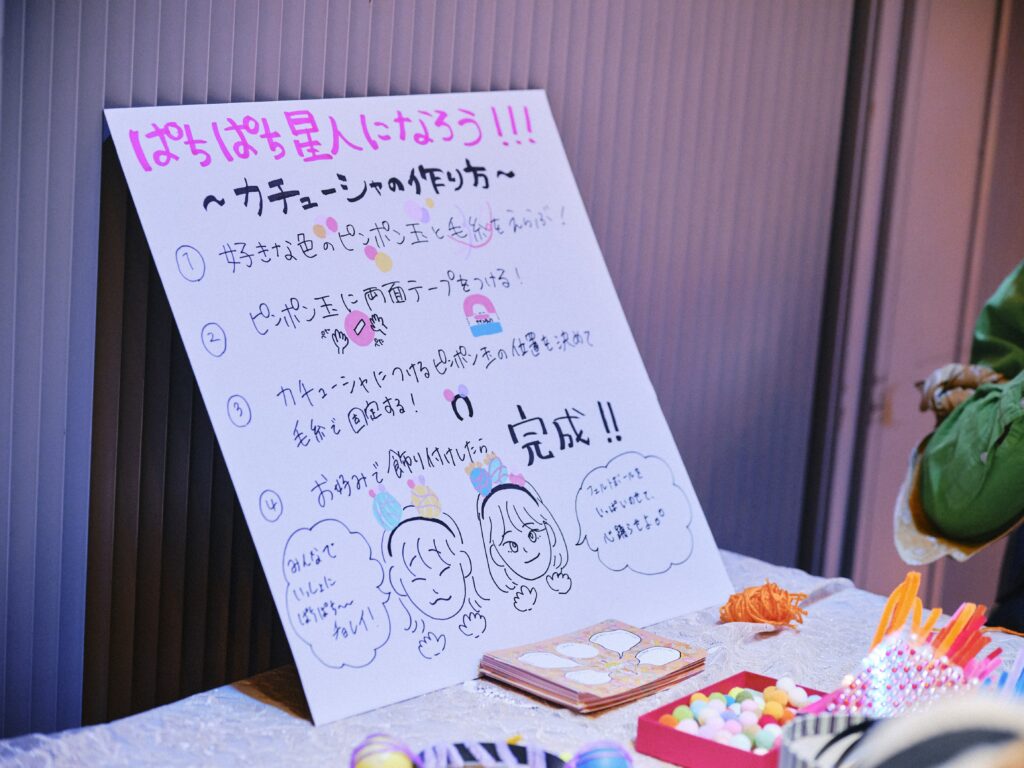 ぱちぱち星人になろう!!!
~カチューシャの作り方~
① 好きな色のピンポン玉と毛糸をえらぶ!
② ピンポン玉に両面テープをつける!
③ カチューシャにつけるピンポン玉の位置を決めて
毛糸で固定する!
④ お好みで飾り付けしたら
完成!!
みんなで
いっしょに
ぱちぱち〜
チョレイ!
フェルトボールを
いっぱいのせて、
心踊らせよ。